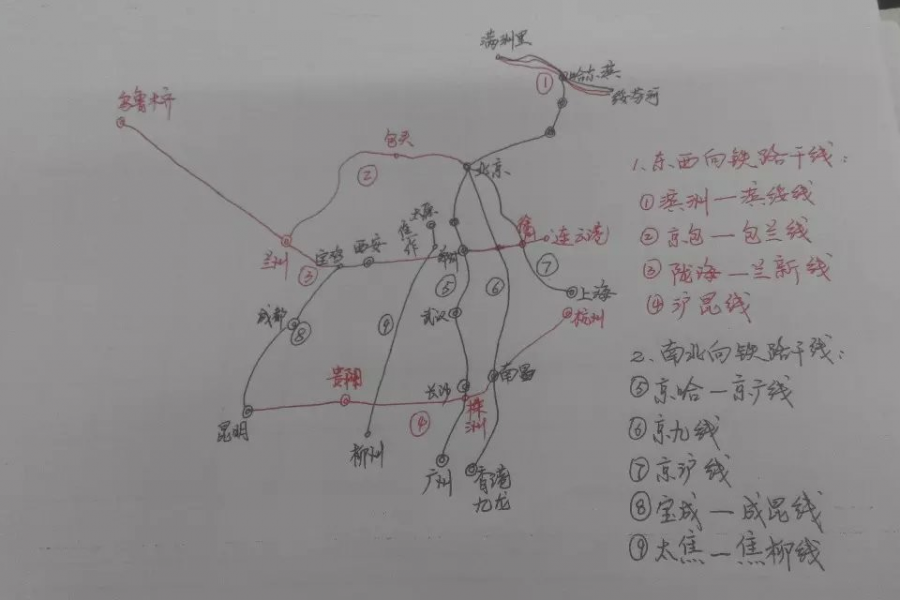 满洲里
哈尔滨
①
绥芬河
乌鲁木齐
包头
北京
②
太原
焦作
徐州
连云港
兰州
宝鸡
西安
郑州
③
⑦
⑤
⑥
上海
成都
⑧
⑨
武汉
杭州
贵阳
长沙
南昌
昆明
④
株洲
柳州
广州
香港
九龙
1、东西向铁路干线:
①滨洲一滨绥线
②京包一包兰线
③陇海一兰新线
④沪昆线
2、南北向铁路干线:
⑤京哈一京广线
⑥京九线
⑦京沪线
⑧宝成一成昆线
⑨太焦一焦柳线